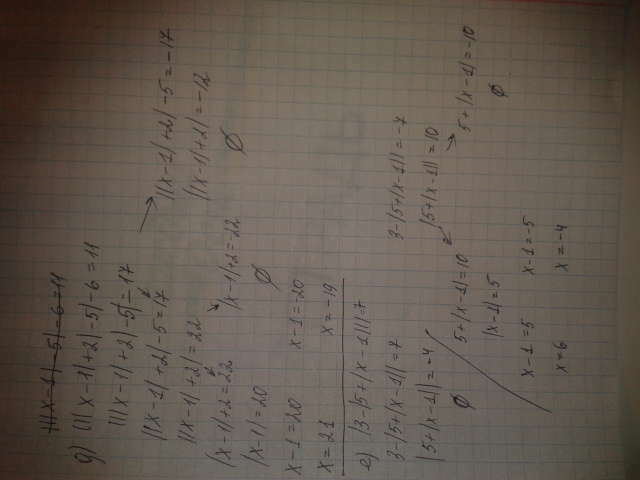 |||x-1|-5|-6=11
д) |||x-1|+2|-5|-6=11
|||x-1|+2|-5|=17
||x-1|+2|-5=17
||x-1|+2|-5=-17
||x-1|+2|=22
||x-1|+2|=-12
|x-1|+2=22
|x-1|+2=-22
∅
|x-1|=20
∅
x-1=20
x-1=-20
x=21
x=-19
е) |3-|5+|x-1|||=7
3-|5+|x-1||=7
3-|5+|x-1||=-7
|5+|x-1||=-4
|5+|x-1||=10
∅
5+|x-1|=10
5+|x-1|=-10
|x-1|=5
∅
x-1=5
x-1=-5
x=6
x=-4